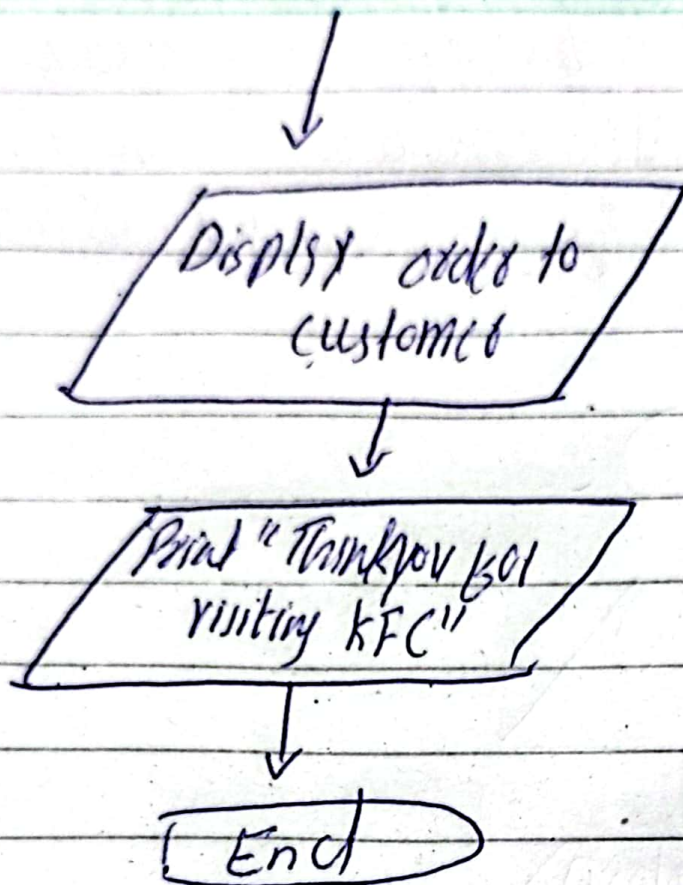 Display order to
customer
Print "Thankyou for
visiting KFC"
End